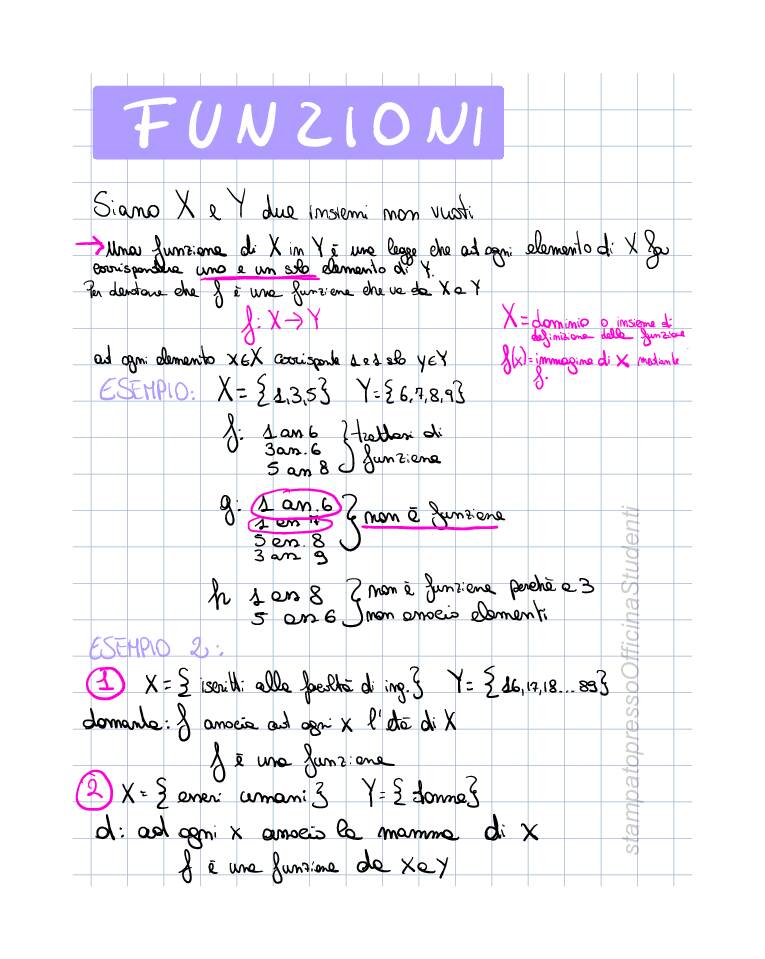 FUNZIONI
Siano X e Y due insiemi non vuoti
→ Una funzione di X in Y è una legge che ad ogni elemento di X fa
corrispondere uno e un solo elemento di Y.
Per denotare che f è una funzione che va da X a Y
f: X → Y
X = dominio o insieme di
definizione della funzione
f(x) = immagine di x mediante
f.
ad ogni elemento x∈X corrisponde 1 e 1 solo y∈Y
ESEMPIO: X = {1,3,5} Y = {6,7,8,9}
f: 1 ass 6 } trattasi di
3 ass. 6 funzione
5 ass 8
g: 1 ass. 6 } non è funzione
1 ass 7
5 ass. 8
3 ass 9
h 1 ass 8 } non è funzione perchè a 3
5 ass 6 non associo elementi
ESEMPIO 2:
1 X = { iscritti alla facoltà di ing. } Y = {16,17,18...89}
domanda: f associa ad ogni x l'età di X
f è una funzione
2 X = { esseri umani } Y = { donne }
d: ad ogni x associo la mamma di X
f è una funzione da X a Y
stampatopressoOfficinaStudenti